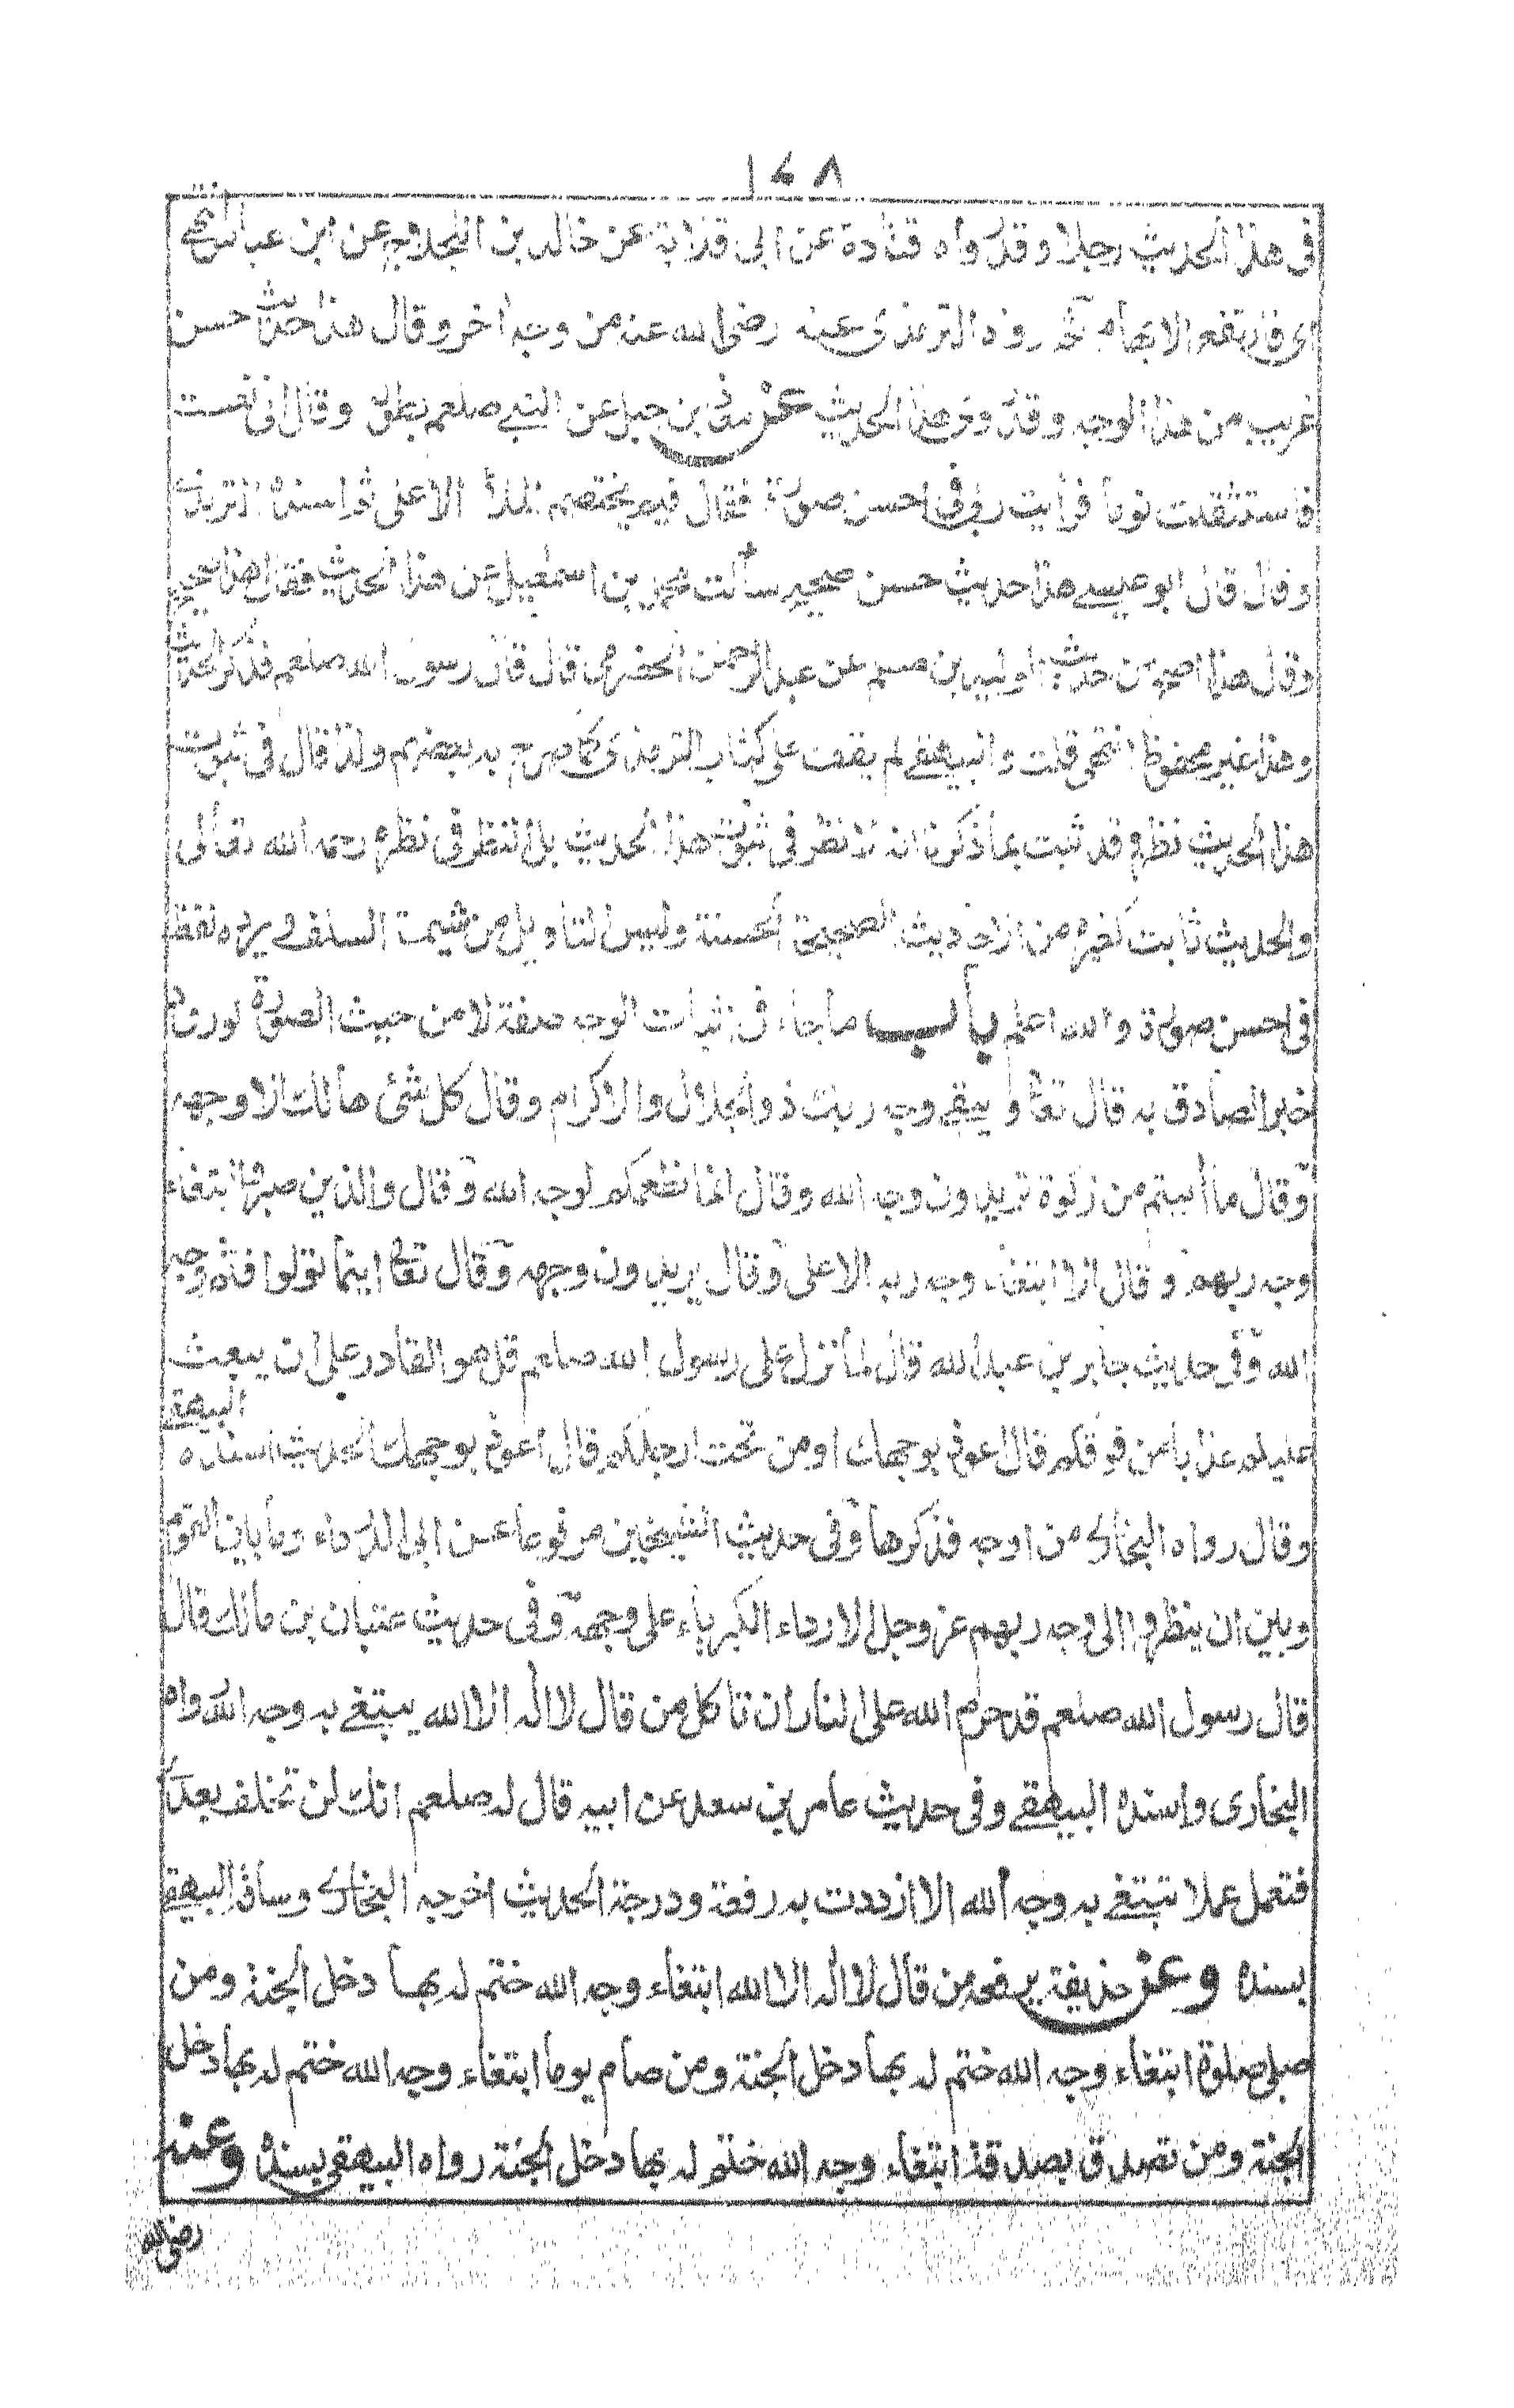 ١٤٨
في هذا الحديث رجلا وقد رواه قتادة عن ابي قلابة عن خالد بن اللجلاج عن ابن عباس انتهى
الابهام رواه الترمذي عنه رضي الله عنه من وجه اخر وقال هذا حديث حسن
غريب من هذا الوجه وقد روى هذا الحديث عن معاذ بن جبل عن النبي صلعم بطوله وقال اني نعست
فاستثقلت نوما فرأيت ربي في احسن صورة فقال فيم يختصم الملأ الاعلى ثم اسنده الترمذي
وقال قال ابو عيسى هذا حديث حسن صحيح سألت محمد بن اسمعيل عن هذا الحديث فقال هذا صحيح
وقال هذا اصح من حديث الوليد بن مسلم عن عبد الرحمن الحضرمي قال قال رسول الله صلعم فذكر الحديث
وهذا غير محفوظ انتهى قلت والبيهقي لم يقف على كتاب الترمذي كما صرح به بعضهم ولذا قال في ثبوت
هذا الحديث نظر وقد ثبت بما ذكرنا انه لا نظر في ثبوت هذا الحديث بل النظر في نظره رحمه الله تعالى
والحديث ثابت كغيره من الاحاديث الصحيحة الحسنة وليس التاويل من شيمة السلف في يرده لفظ
في احسن صورة والله اعلم باب ما جاء في اثبات الوجه صفة لا من حيث الصورة لورود
خبر الصادق به قال تعا ويبقى وجه ربك ذو الجلال والاكرام وقال كل شئ هالك الا وجهه
وقال ما اتيتم من زكوة تريدون وجه الله وقال انما نطعمكم لوجه الله وقال والذين صبروا ابتغاء
وجه ربهم وقال الا ابتغاء وجه ربه الاعلى وقال يريدون وجهه وقال تعا اينما تولوا فثم وجه
الله وفي حديث جابر بن عبد الله قال لما نزل على رسول الله صلعم قل هو القادر على ان يبعث
عليكم عذابا من فوقكم قال اعوذ بوجهك او من تحت ارجلكم قال اعوذ بوجهك الحديث اسنده البيهقي
وقال رواه البخاري من اوجه فذكرها وفي حديث الشيخين مرفوعا عن ابي الدرداء وما بين القوم
وبين ان ينظروا الى وجه ربهم عز وجل الا رداء الكبرياء على وجهه وفي حديث عتبان بن مالك قال
قال رسول الله صلعم قد حرم الله على النار ان تاكل من قال لا اله الا الله يبتغي به وجه الله رواه
البخاري واسنده البيهقي وفي حديث عامر بن سعد عن ابيه قال له صلعم انك لن تخلف بعدي
فتعمل عملا تبتغي به وجه الله الا ازددت به رفعة ودرجة الحديث اخرجه البخاري وساق البيهقي
بسنده وعن حذيفة يرفعه من قال لا اله الا الله ابتغاء وجه الله ختم له بها دخل الجنة ومن
صلى صلوة ابتغاء وجه الله ختم له بها دخل الجنة ومن صام يوما ابتغاء وجه الله ختم له بها دخل
الجنة ومن تصدق بصدقة ابتغاء وجه الله ختم له بها دخل الجنة رواه البيهقي بسنده وعنه
رضي الله